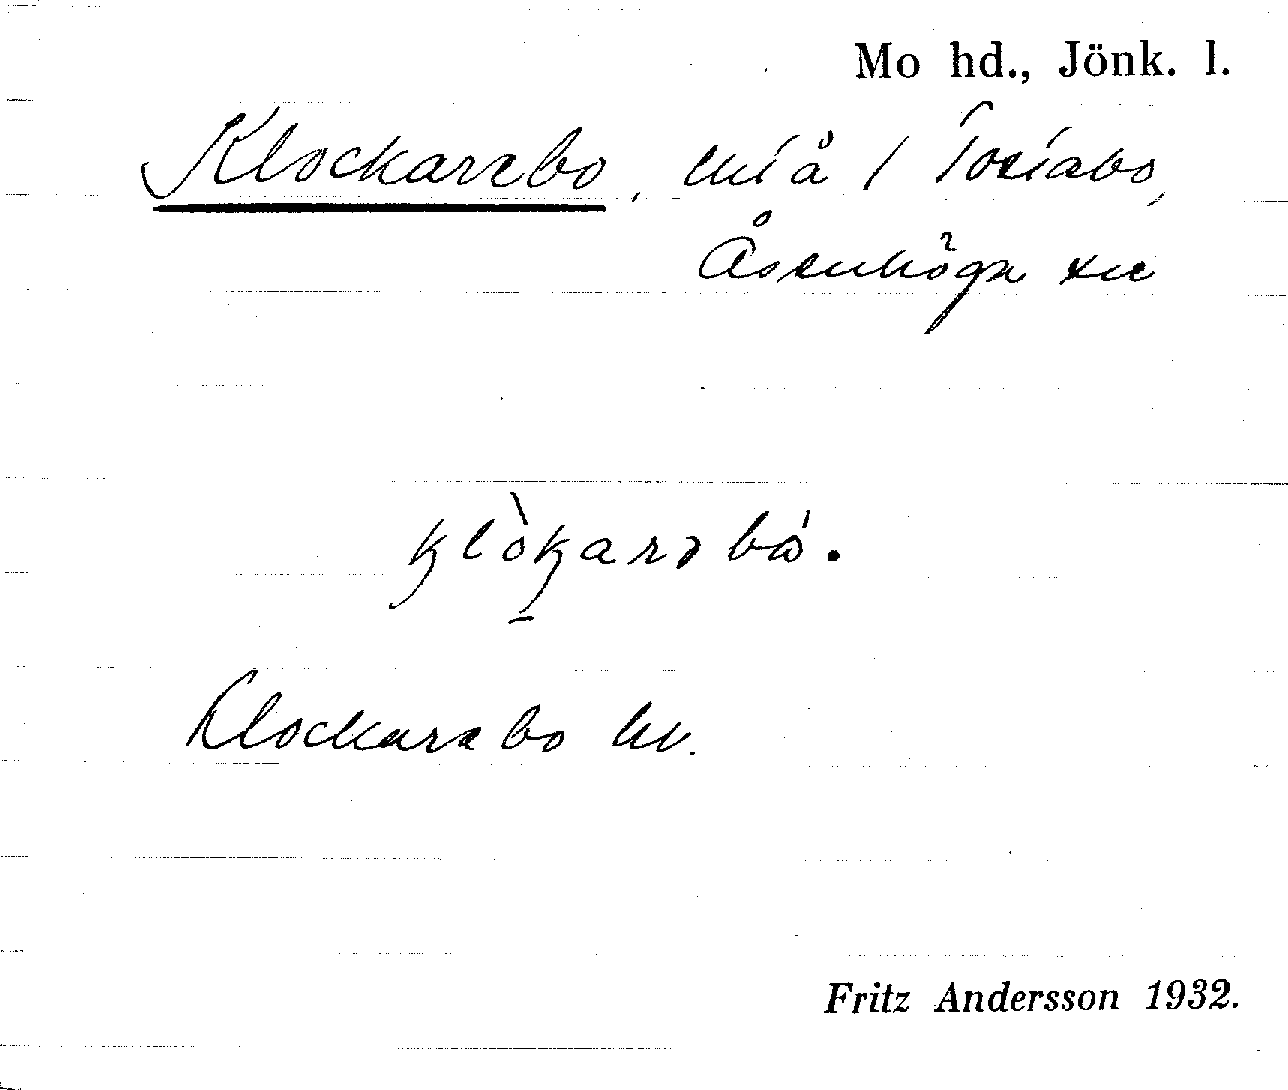 Mo hd., Jönk. l.
Klockarebo, lht å / Toriabo,
Åsenhöga sn
klòkarəbó.
Klockarebo hv.
Fritz Andersson 1932.